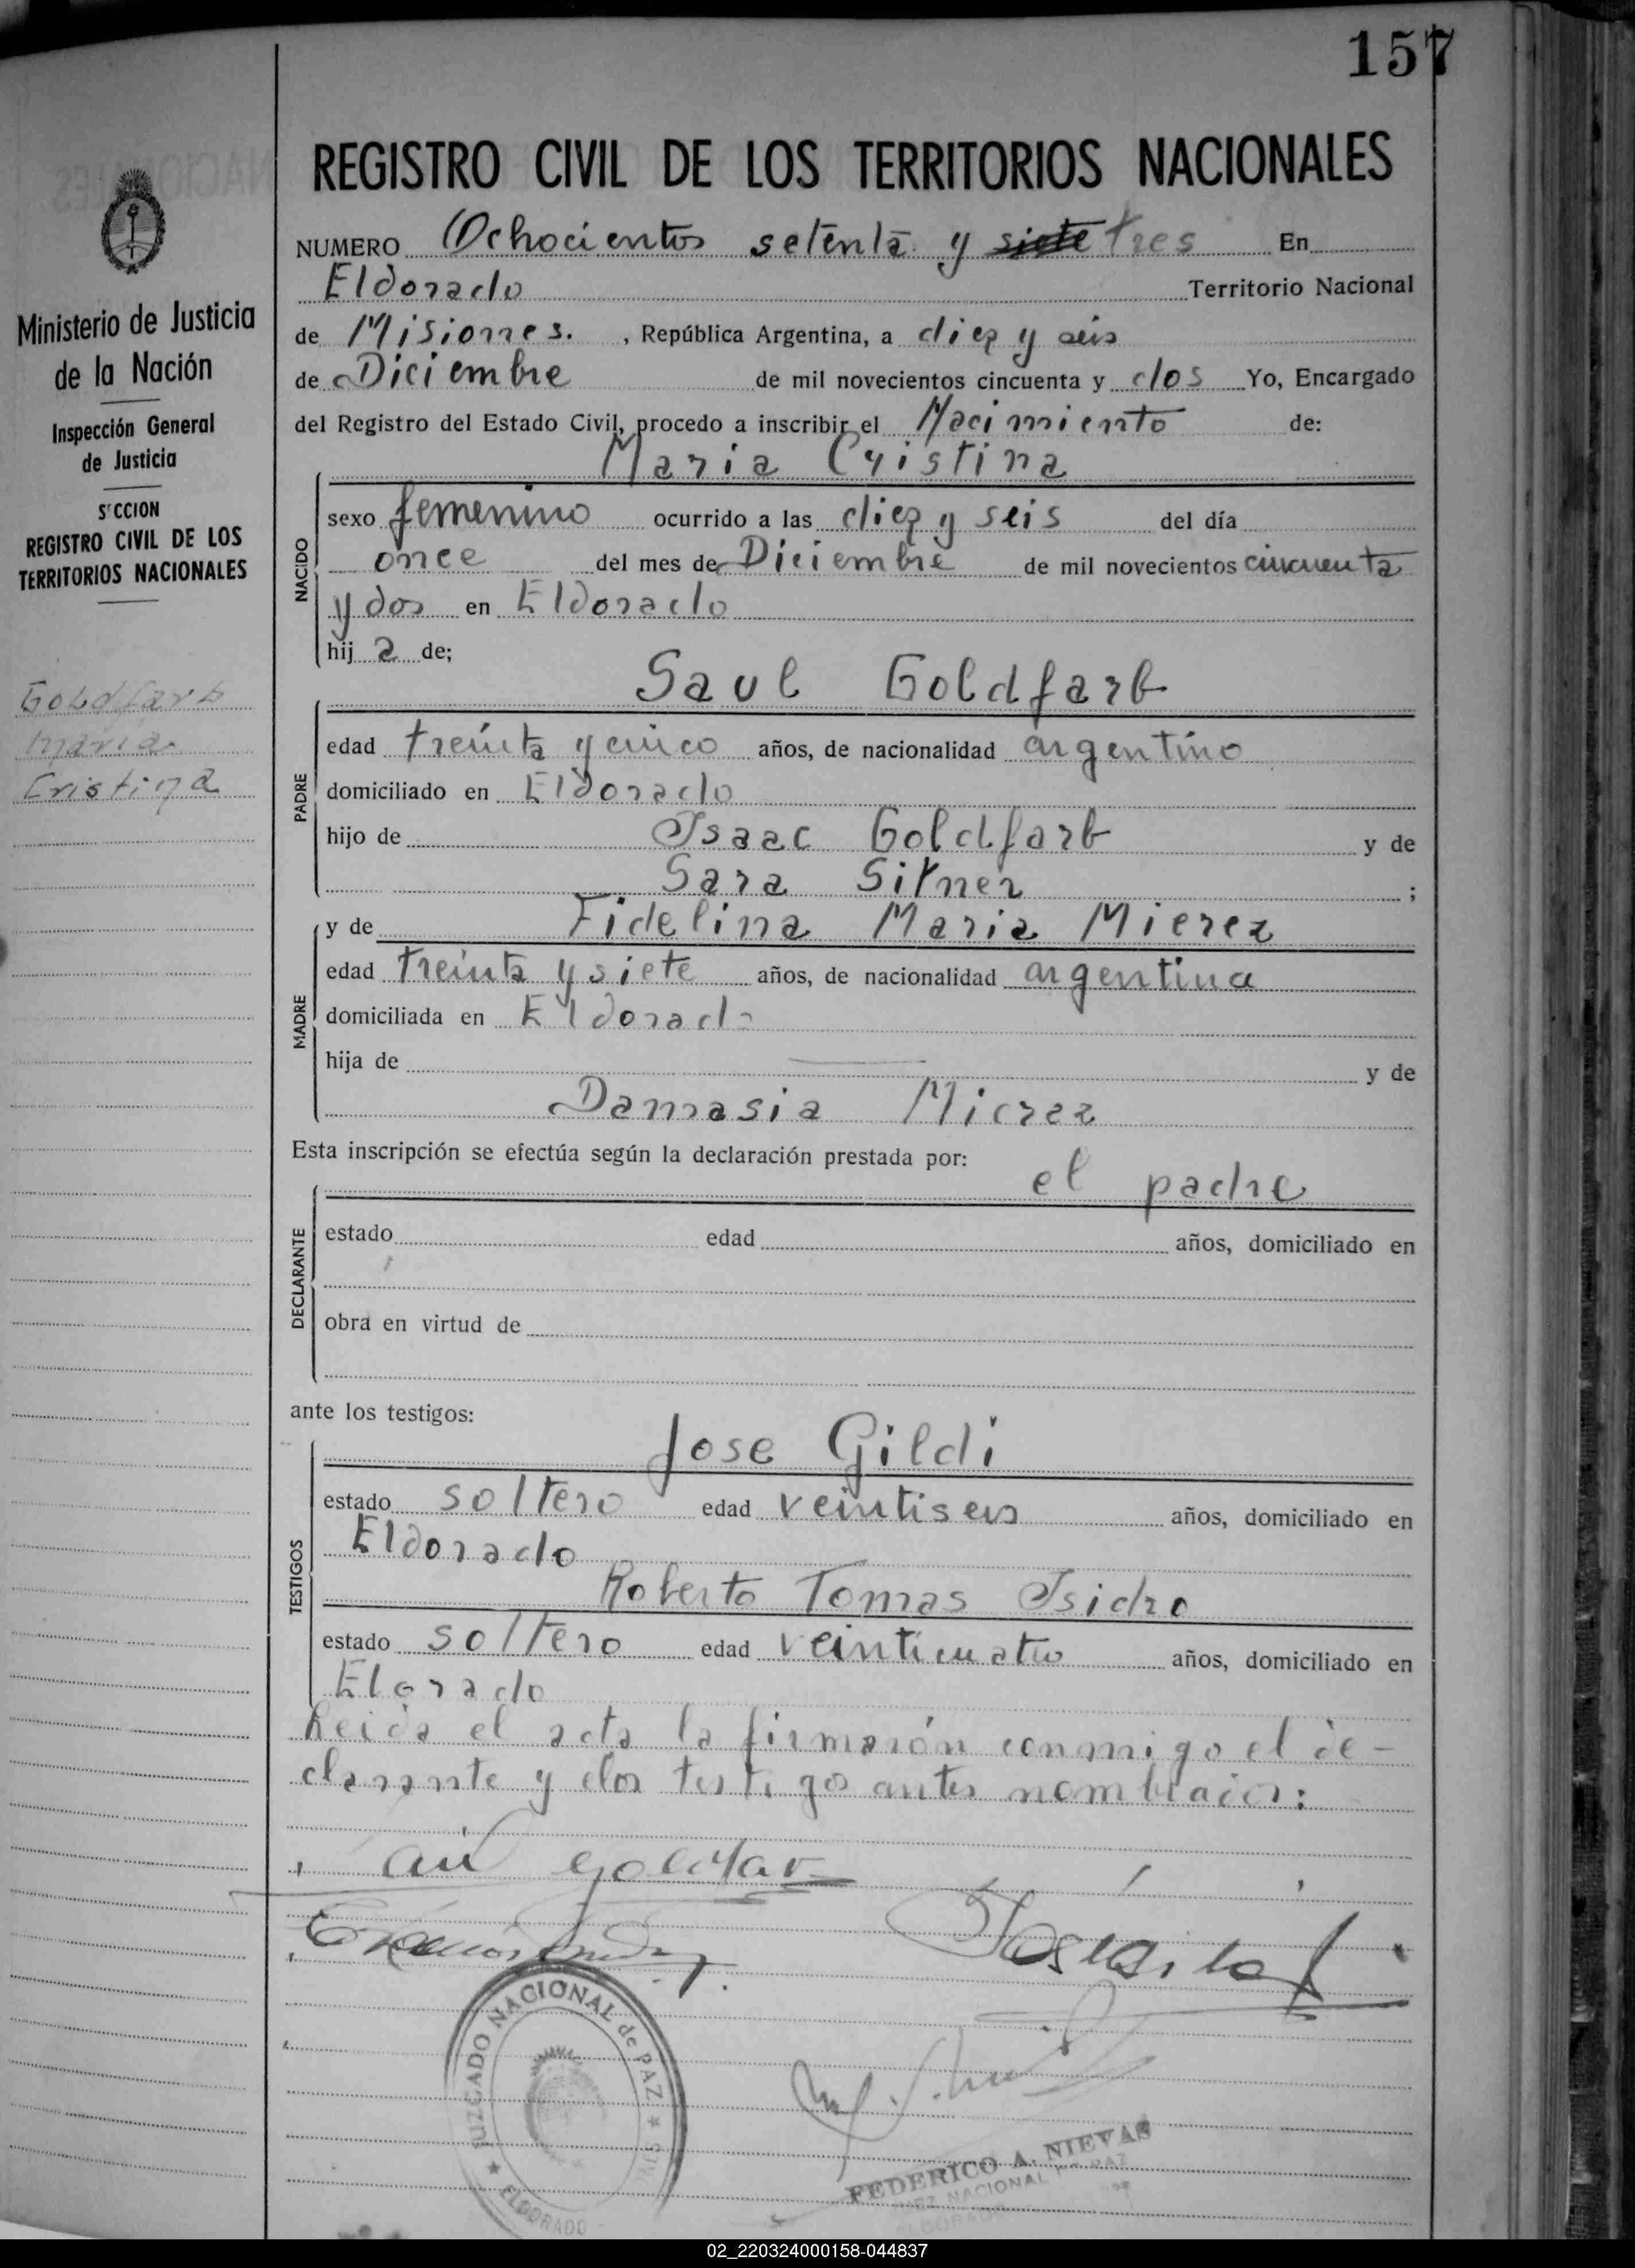 157
REGISTRO CIVIL DE LOS TERRITORIOS NACIONALES
Ministerio de Justicia
de la Nación
Inspección General
de Justicia
SECCION
REGISTRO CIVIL DE LOS
TERRITORIOS NACIONALES
Goldfarb
Maria
Cristina
NUMERO Ochocientos setenta y siete tres En
Eldorado Territorio Nacional
de Misiones. , República Argentina, a diez y seis
de Diciembre de mil novecientos cincuenta y dos Yo, Encargado
del Registro del Estado Civil, procedo a inscribir el Nacimiento de:
Maria Cristina
NACIDO
sexo femenino ocurrido a las diez y seis del día
once del mes de Diciembre de mil novecientos cincuenta
y dos en Eldorado
hij a de;
Saul Goldfarb
PADRE
edad treinta y cinco años, de nacionalidad argentino
domiciliado en Eldorado
hijo de Isaac Goldfarb y de
Sara Sitner ;
y de Fidelina Maria Mierez
MADRE
edad treinta y siete años, de nacionalidad argentina
domiciliada en Eldorado
hija de y de
Damasia Mierez
Esta inscripción se efectúa según la declaración prestada por:
el padre
DECLARANTE
estado edad años, domiciliado en
obra en virtud de
ante los testigos:
Jose Gildi
TESTIGOS
estado soltero edad veintiseis años, domiciliado en
Eldorado
Roberto Tomas Isidro
estado soltero edad veinticuatro años, domiciliado en
Elorado
Leida el acta la firmarón conmigo el de-
clarante y dos testigos antes nombrados:
JUZGADO NACIONAL de PAZ
ELDORADO
FEDERICO A. NIEVAS
JUEZ NACIONAL DE PAZ
ELDORADO
02_220324000158-044837